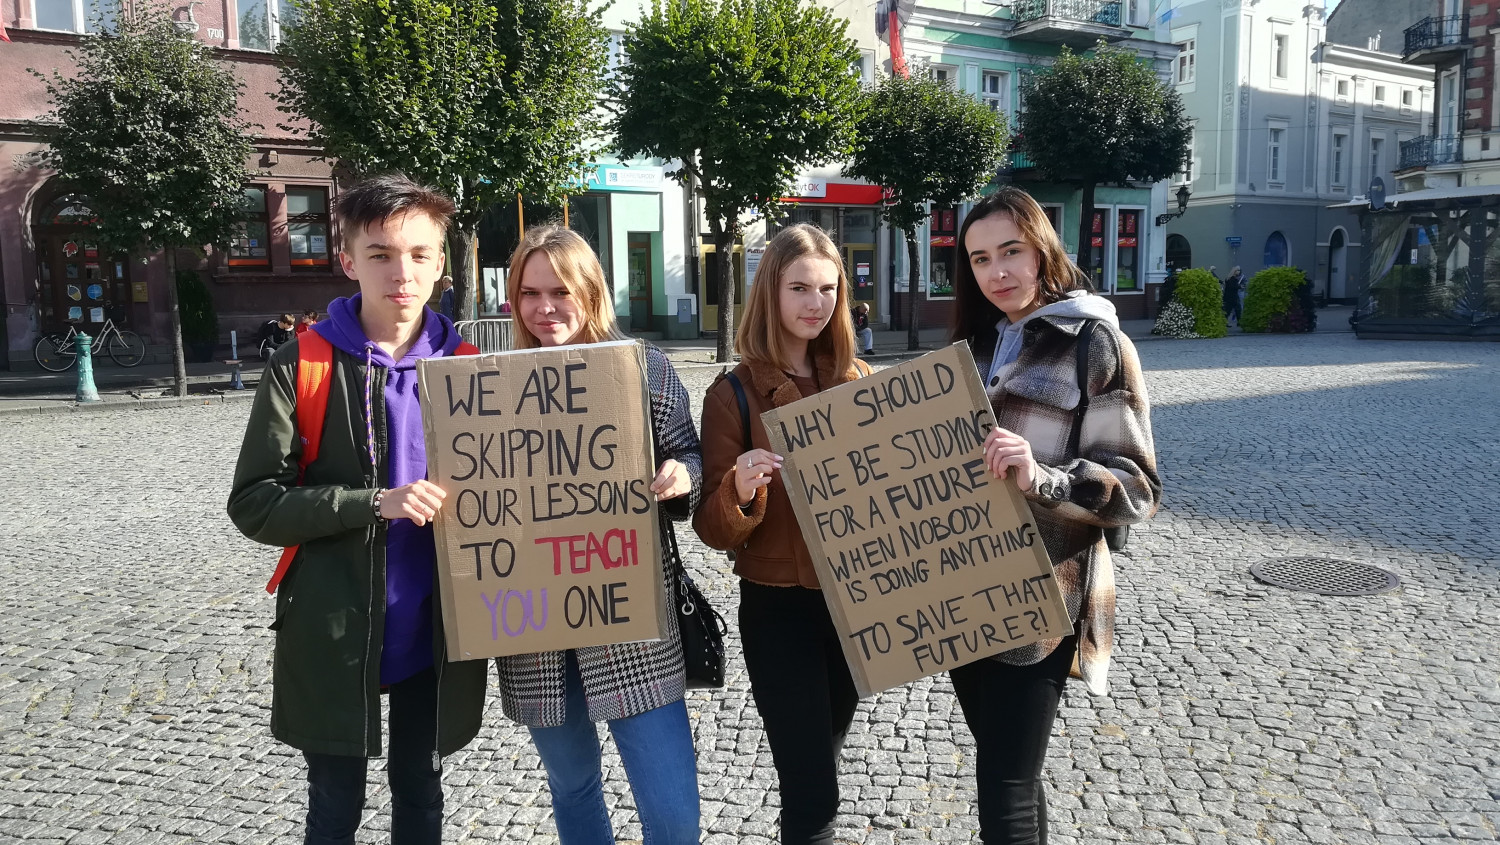 WE ARE
SKIPPING
OUR LESSONS
TO TEACH
YOU ONE
WHY SHOULD
WE BE STUDYING
FOR A FUTURE
WHEN NOBODY
IS DOING ANYTHING
TO SAVE THAT
FUTURE?!
1700